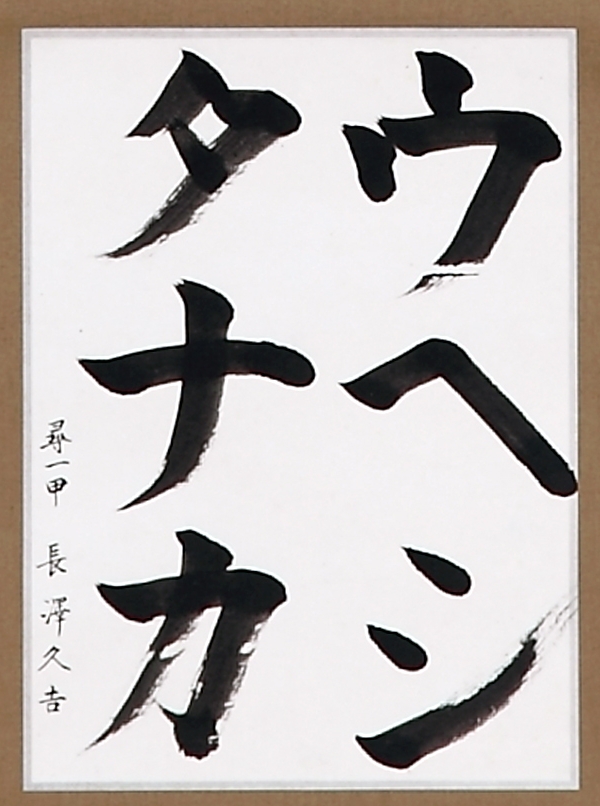 ウヘシ
タナカ
尋一甲 長澤久吉